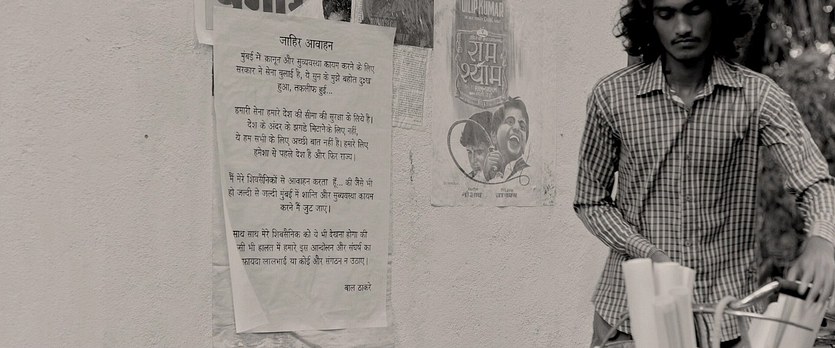 जाहिर आवाहन
मुंबई में क़ानून और सुव्यवस्था कायम करने के लिए
सरकार ने सेना बुलाई है, ये सुन के मुझे बहोत दुःख
हुआ, तकलीफ हुई...
हमारी सेना हमारे देश की सीमा की सुरक्षा के लिये है।
देश के अंदर के झगडे मिटानेके लिए नहीं,
ये हम सभी के लिए अच्छी बात नहीं है। हमारे लिए
हमेशा से पहले देश है और फिर राज्य।
मैं मेरे शिवसैनिकों से आवाहन करता हूँ... की जैसे भी
हो जल्दी से जल्दी मुंबई में शान्ति और सुव्यवस्था कायम
करने में जुट जाएं।
साथ साथ मेरे शिवसैनिक को ये भी देखना होगा की
सी भी हालत में हमारे इस आन्दोलन और संघर्ष का
फ़ायदा लालभाई या कोई और संगठन न उठाए।
बाल ठाकरे
DILIP KUMAR
राम
श्याम